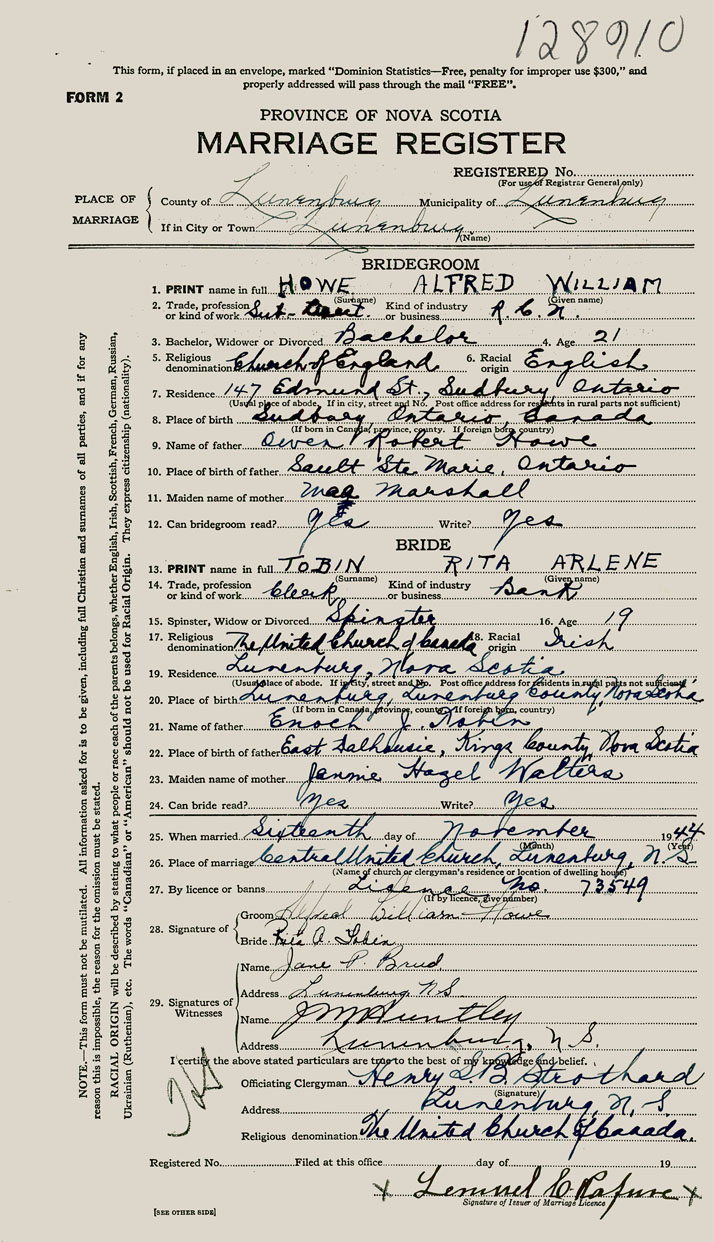 128910
This form, if placed in an envelope, marked “Dominion Statistics—Free, penalty for improper use $300,” and
properly addressed will pass through the mail “FREE”.
FORM 2
PROVINCE OF NOVA SCOTIA
MARRIAGE REGISTER
REGISTERED No.
(For use of Registrar General only)
PLACE OF MARRIAGE
County of Lunenburg Municipality of Lunenburg
If in City or Town Lunenburg
(Name)
BRIDEGROOM
1. PRINT name in full HOWE ALFRED WILLIAM
(Surname) (Given name)
2. Trade, profession or kind of work Sub-Lieut. Kind of industry or business R.C.N.
3. Bachelor, Widower or Divorced Bachelor 4. Age 21
5. Religious denomination Church of England 6. Racial origin English
7. Residence 147 Edmund St., Sudbury, Ontario
(Usual place of abode. If in city, street and No. Post office address for residents in rural parts not sufficient)
8. Place of birth Sudbury, Ontario, Canada
(If born in Canada, province, county. If foreign born, country)
9. Name of father Owen Robert Howe
10. Place of birth of father Sault Ste. Marie, Ontario
11. Maiden name of mother Mae Marshall
12. Can bridegroom read? Yes Write? Yes
BRIDE
13. PRINT name in full TOBIN RITA ARLENE
(Surname) (Given name)
14. Trade, profession or kind of work Clerk Kind of industry or business Bank
15. Spinster, Widow or Divorced Spinster 16. Age 19
17. Religious denomination The United Church of Canada 18. Racial origin Irish
19. Residence Lunenburg, Nova Scotia
(Usual place of abode. If in city, street and No. Post office address for residents in rural parts not sufficient)
20. Place of birth Lunenburg, Lunenburg County, Nova Scotia
(If born in Canada, province, county. If foreign born, country)
21. Name of father Enoch J. Tobin
22. Place of birth of father East Dalhousie, Kings County, Nova Scotia
23. Maiden name of mother Jennie Hazel Walters
24. Can bride read? Yes Write? Yes
25. When married Sixteenth day of November 1944
(Month) (Year)
26. Place of marriage Central United Church, Lunenburg, N.S.
(Name of church or clergyman's residence or location of dwelling house)
27. By licence or banns Lisence No. 73549
(If by licence, give number)
28. Signature of
Groom Alfred William Howe
Bride Rita A. Tobin
29. Signatures of Witnesses
Name Jane P.
Address Lunenburg NS
Name J M Huntley
Address Lunenburg, N.S.
I certify the above stated particulars are true to the best of my knowledge and belief.
Officiating Clergyman Henry S.B. Strothard
(Signature)
Address Lunenburg, N.S.
Religious denomination The United Church of Canada.
Registered No. Filed at this office day of 19
X Lemuel C. X
Signature of Issuer of Marriage Licence
[SEE OTHER SIDE]
NOTE.—This form must not be mutilated. All information asked for is to be given, including full Christian and surnames of all parties, and if for any
reason this is impossible, the reason for the omission must be stated.
RACIAL ORIGIN will be described by stating to what people or race each of the parents belongs, whether English, Irish, Scottish, French, German, Russian,
Ukrainian (Ruthenian), etc. The words “Canadian” or “American” should not be used for Racial Origin. They express citizenship (nationality).